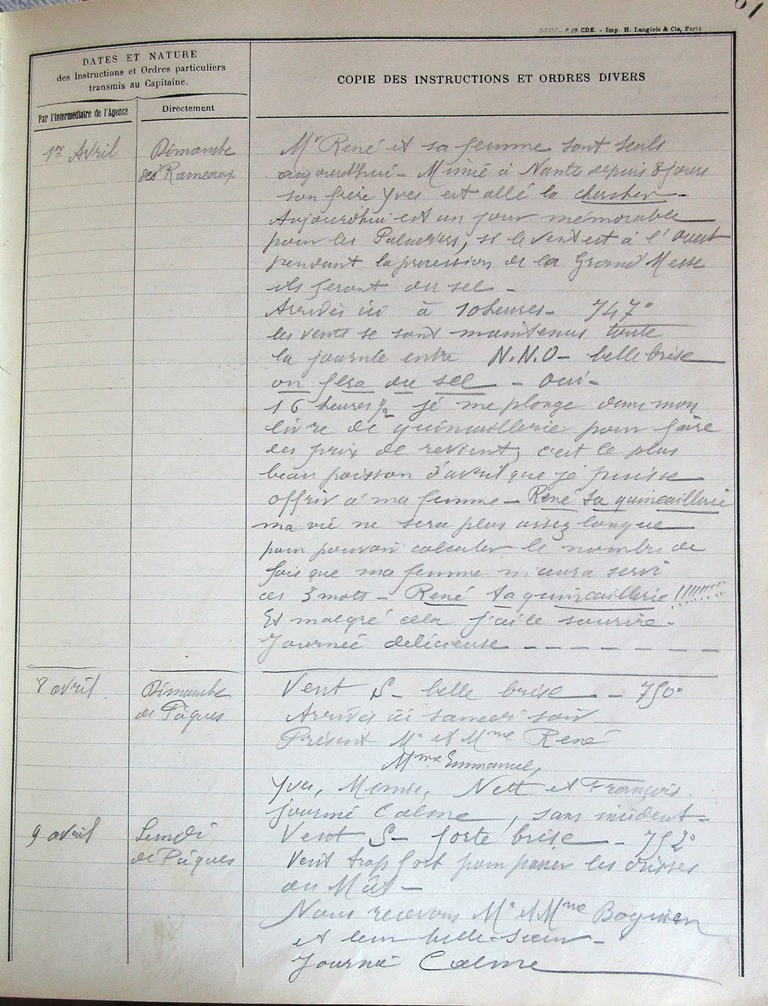 61
Imp. H. Langlois & Cie, Paris
DATES ET NATURE
des Instructions et Ordres particuliers
transmis au Capitaine.
Par l'Intermédiaire de l'Agence
Directement
COPIE DES INSTRUCTIONS ET ORDRES DIVERS
1er Avril
Dimanche
des Rameaux
Mr René et sa femme sont seuls
aujourd'hui - Mimie à Nante depuis 8 jours
son frère Yves est allé la chercher -
Aujourd'hui est un jour mémorable
pour les Paludiers, si le vent est à l'ouest
pendant la procession de la Grand'Messe
ils feront du sel -
Arrivés ici à 10 heures - 747°
les vents se sont maintenus toute
la journée entre N.N.O - belle brise
on fera du sel - oui -
16 heures ½ je me plonge dans mon
livre de quincaillerie pour faire
des prix de revient, c'est le plus
beau poisson d'avril que je puisse
offrir à ma femme - René ta quincaillerie
ma vie ne sera plus assez longue
pour pouvoir calculer le nombre de
fois que ma femme m'aura servi
ces 3 mots - René ta quincaillerie !!!!!!!!
Et malgré cela j'ai le sourire -
Journée délicieuse - - - - - -
8 avril
Dimanche
de Pâques
Vent S - belle brise - 750°
Arrivés ici samedi soir
Présent Mr et Mme René
Mme Emmanuel,
Yves, Mimie, Nett et François.
journée Calme, sans incident -
9 avril
Lundi
de Pâques
Vent S - forte brise - 752°
Vent trop fort pour passer les drisses
au Mât -
Nous recevons Mr et Mme
et leur belle-soeur -
Journée Calme